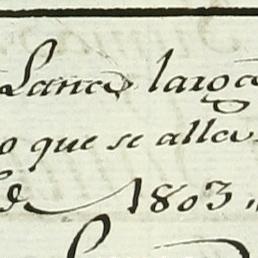 Lana larga
o que se alla
de 1803